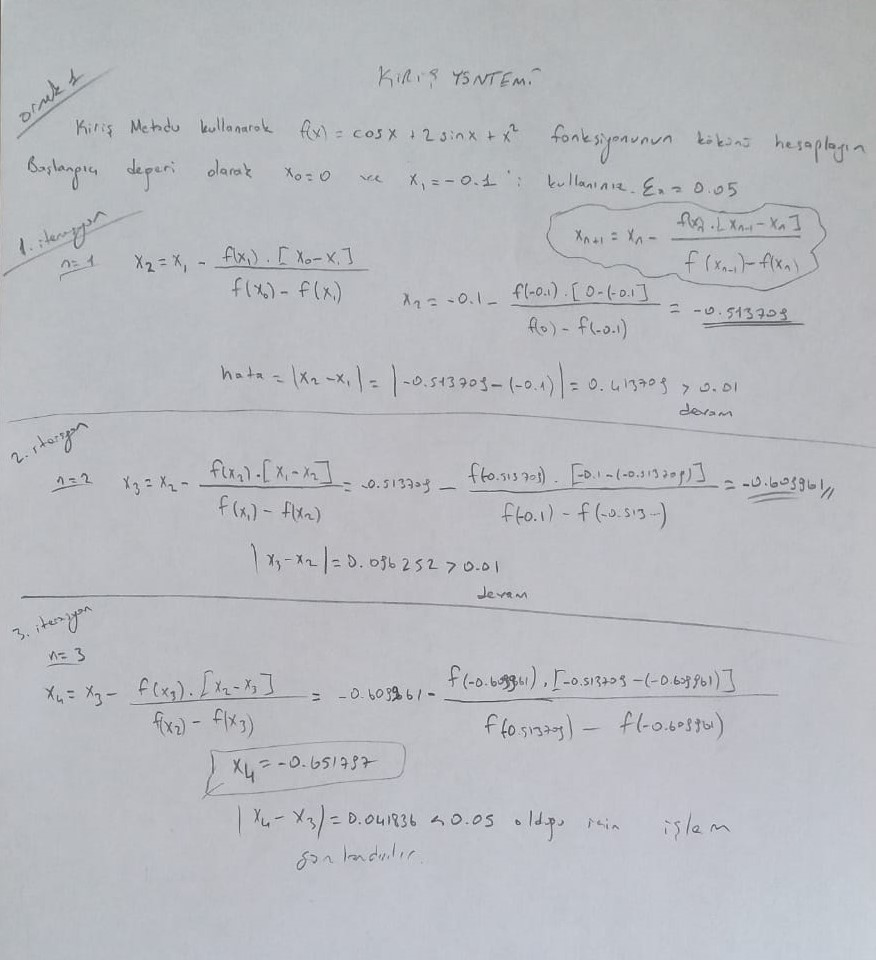 KİRİŞ YÖNTEMİ
Örnek 1
Kiriş Metodu kullanarak f(x) = cosx + 2 sinx + x² fonksiyonunun kökünü hesaplayın
Başlangıç değeri olarak x₀=0 ve x₁=-0.1 kullanınız. Ɛ = 0.05
xₙ₊₁ = xₙ - f(xₙ).[xₙ₋₁-xₙ] / f(xₙ₋₁)-f(xₙ)
1. iterasyon
n=1 x₂=x₁ - f(x₁).[x₀-x₁] / f(x₀)-f(x₁)
x₂=-0.1- f(-0.1).[0-(-0.1] / f(0)-f(-0.1) = -0.513709
hata = |x₂-x₁| = |-0.513709-(-0.1)| = 0.413709 > 0.01
devam
2. iterasyon
n=2 x₃=x₂- f(x₂).[x₁-x₂] / f(x₁)-f(x₂) = -0.513709 - f(-0.513709).[-0.1-(-0.513709)] / f(-0.1)-f(-0.513-) = -0.609961//
|x₃-x₂|=0.096252>0.01
devam
3. iterasyon
n=3
x₄=x₃- f(x₃).[x₂-x₃] / f(x₂)-f(x₃) = -0.609961- f(-0.609961).[-0.513709-(-0.609961)] / f(0.513709)-f(-0.609961)
x₄=-0.651797
|x₄-x₃|=0.041836 < 0.05 olduğu için işlem
sonlandırılır.